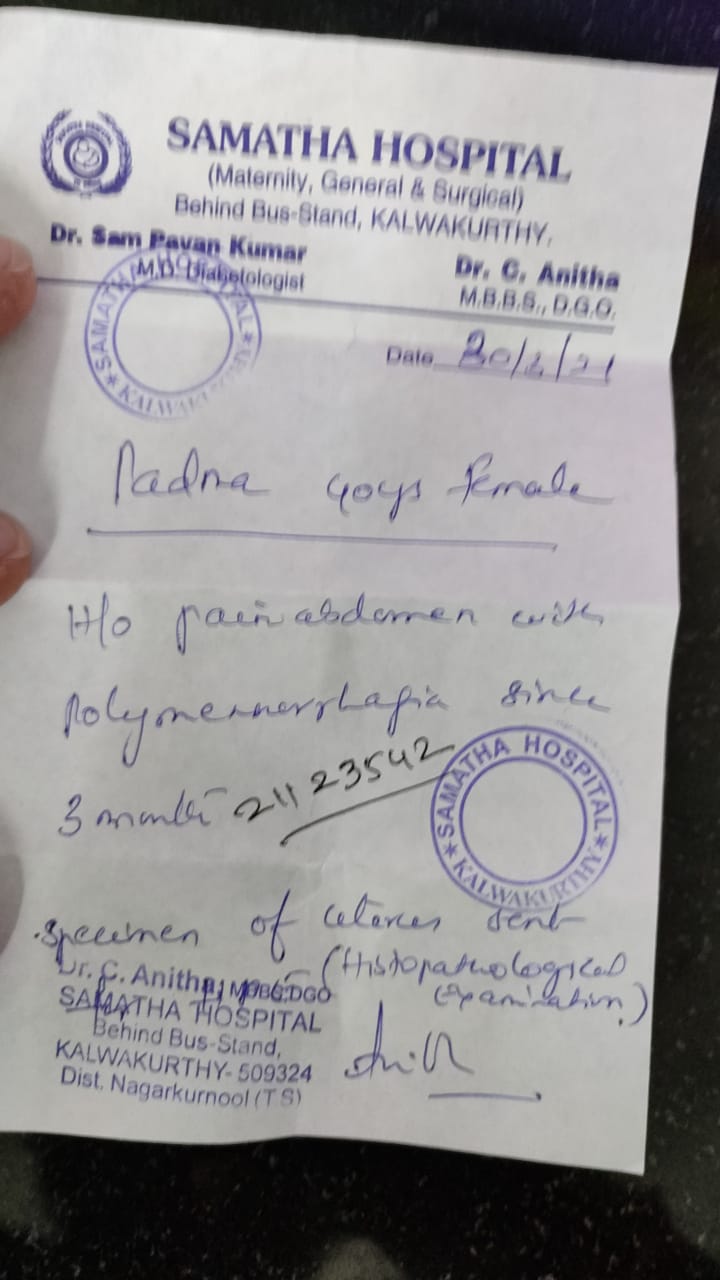 SAMATHA HOSPITAL
(Maternity, General & Surgical)
Behind Bus-Stand, KALWAKURTHY.
Dr. Sam Pavan Kumar
M.D. Diabetologist
Dr. C. Anitha
M.B.B.S., D.G.O.
SAMATHA HOSPITAL
* KALWAKURTHY *
Date
Padma 40ys female
H/o pain abdomen with
polymenorrhagia since
3 months 21123542
SAMATHA HOSPITAL
* KALWAKURTHY *
Specimen of uterus sent
(Histopathological
examination.)
Dr. C. Anitha, MBBS, DGO
SAMATHA HOSPITAL
Behind Bus-Stand,
KALWAKURTHY- 509324
Dist. Nagarkurnool (T S)